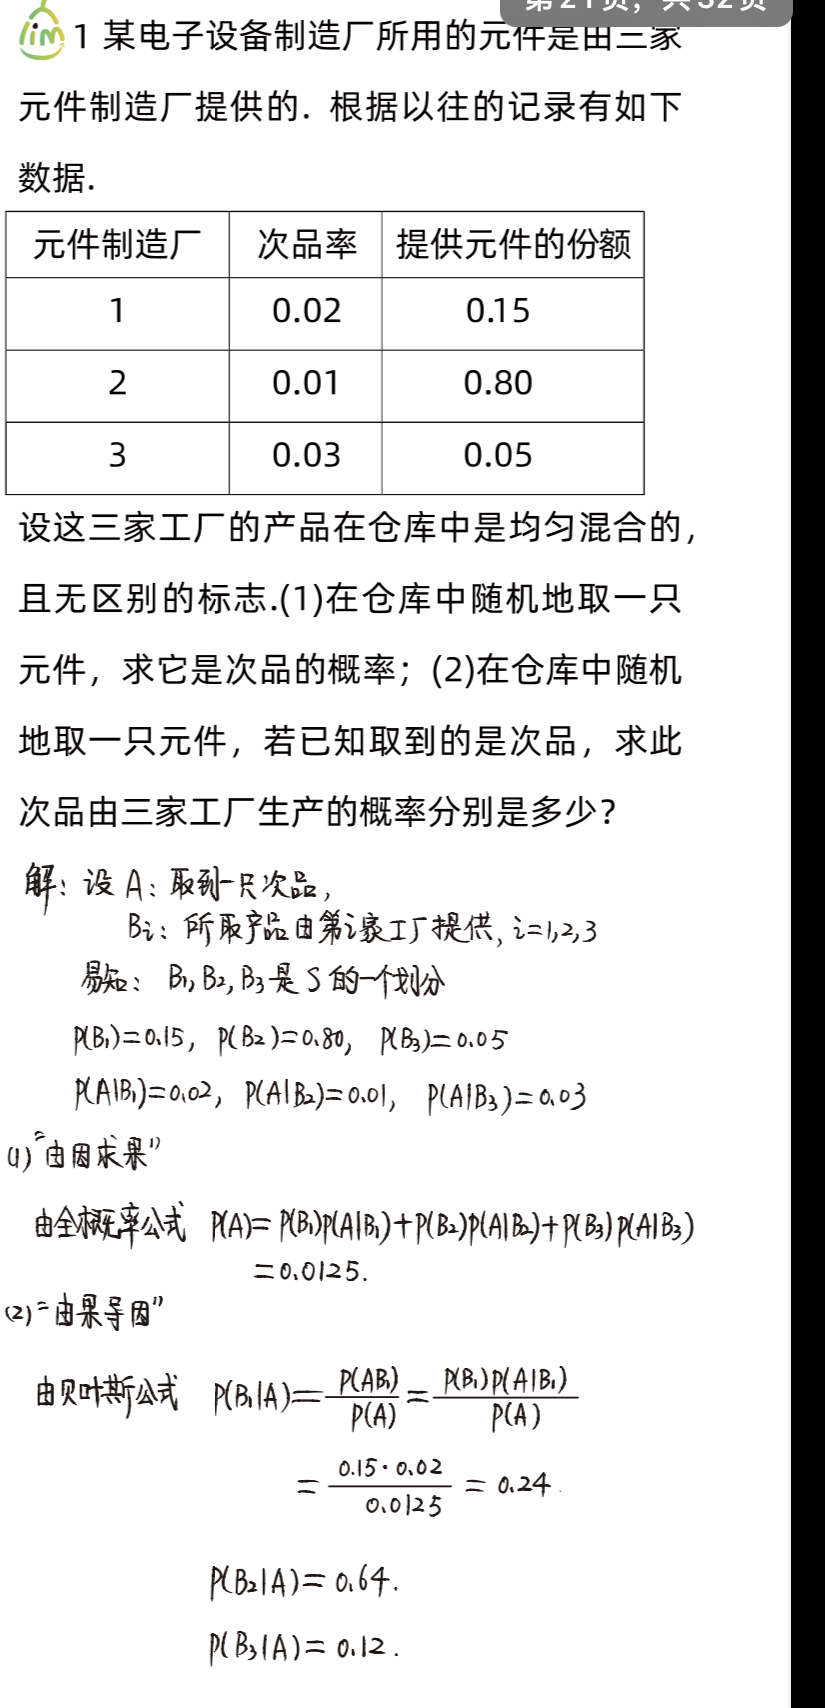 第21页，共32页
lim
1 某电子设备制造厂所用的元件是由三家
元件制造厂提供的. 根据以往的记录有如下
数据.
元件制造厂 次品率 提供元件的份额
1 0.02 0.15
2 0.01 0.80
3 0.03 0.05
设这三家工厂的产品在仓库中是均匀混合的,
且无区别的标志.(1)在仓库中随机地取一只
元件，求它是次品的概率；(2)在仓库中随机
地取一只元件，若已知取到的是次品，求此
次品由三家工厂生产的概率分别是多少？
解：设 A：取到一只次品，
Bi：所取产品由第i家工厂提供, i=1,2,3
易知： B₁, B₂, B₃是 S 的一个划分
P(B₁)=0.15, P(B₂)=0.80, P(B₃)=0.05
P(A|B₁)=0.02, P(A|B₂)=0.01, P(A|B₃)=0.03
(1) "由因求果"
由全概率公式 P(A)= P(B₁)P(A|B₁)+P(B₂)P(A|B₂)+P(B₃)P(A|B₃)
=0.0125.
(2) "由果导因"
由贝叶斯公式 P(B₁|A)= P(AB₁)/P(A) = P(B₁)P(A|B₁)/P(A)
= 0.15·0.02/0.0125 = 0.24.
P(B₂|A)= 0.64.
P(B₃|A)= 0.12.